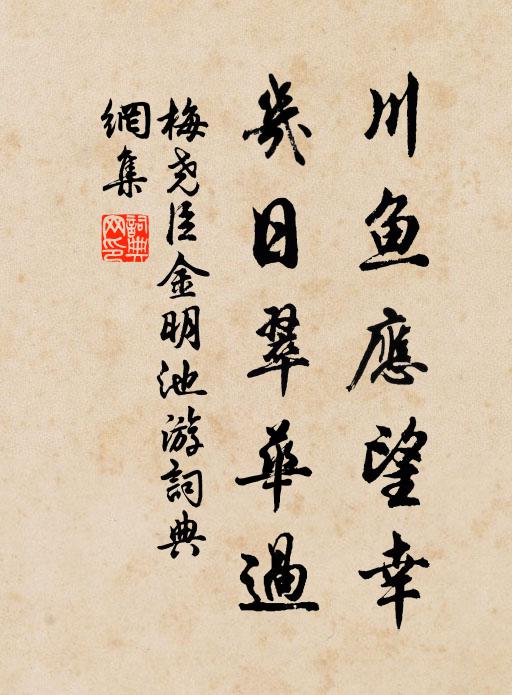 川鱼應望幸
幾日翠華過
梅尧臣金明池游詞典
網集
詞典网印